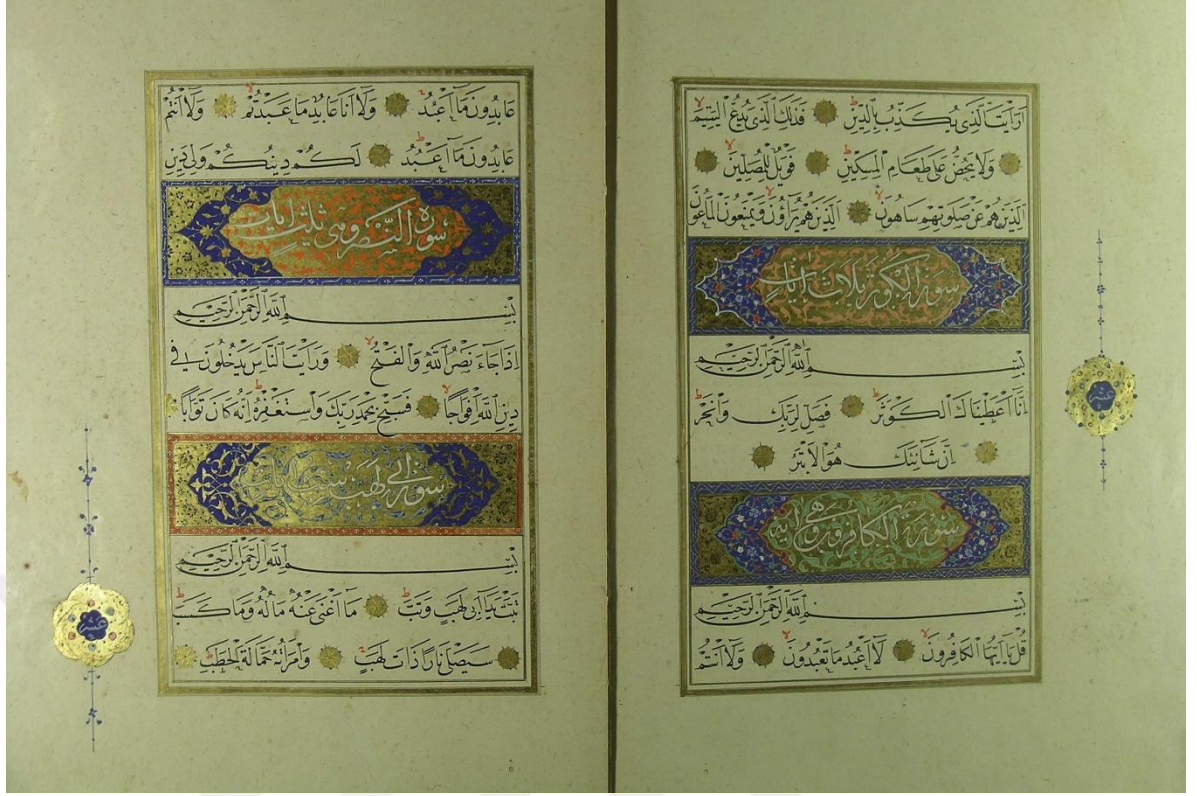 اَرَاَيْتَ الَّذِى يُكَذِّبُ بِالدِّينِ فَذٰلِكَ الَّذِى يَدُعُّ الْيَتِيمَ
وَلَا يَحُضُّ عَلٰى طَعَامِ الْمِسْكِينِ فَوَيْلٌ لِلْمُصَلِّينَ
اَلَّذِينَ هُمْ عَنْ صَلٰوتِهِمْ سَاهُونَ اَلَّذِينَ هُمْ يُرَاؤُنَ وَيَمْنَعُونَ الْمَاعُونَ
سورة الكوثر ثلاث ايات
بِسْمِ اللّٰهِ الرَّحْمٰنِ الرَّحِيمِ
اِنَّا اَعْطَيْنَاكَ الْكَوْثَرَ فَصَلِّ لِرَبِّكَ وَانْحَرْ
اِنَّ شَانِئَكَ هُوَ الْاَبْتَرُ
سورة الكافرون وهى اية
بِسْمِ اللّٰهِ الرَّحْمٰنِ الرَّحِيمِ
قُلْ يَا اَيُّهَا الْكَافِرُونَ لَا اَعْبُدُ مَا تَعْبُدُونَ وَلَا اَنْتُمْ
عشر
عَابِدُونَ مَا اَعْبُدُ وَلَا اَنَا عَابِدٌ مَا عَبَدْتُمْ وَلَا اَنْتُمْ
عَابِدُونَ مَا اَعْبُدُ لَكُمْ دِينُكُمْ وَلِىَ دِينِ
سورة النصر وهى ثلث ايات
بِسْمِ اللّٰهِ الرَّحْمٰنِ الرَّحِيمِ
اِذَا جَاءَ نَصْرُ اللّٰهِ وَالْفَتْحُ وَرَاَيْتَ النَّاسَ يَدْخُلُونَ فِى
دِينِ اللّٰهِ اَفْوَاجًا فَسَبِّحْ بِحَمْدِ رَبِّكَ وَاسْتَغْفِرْهُ اِنَّهُ كَانَ تَوَّابًا
سورة ابى لهب ست ايات
بِسْمِ اللّٰهِ الرَّحْمٰنِ الرَّحِيمِ
تَبَّتْ يَدَا اَبِى لَهَبٍ وَتَبَّ مَا اَغْنٰى عَنْهُ مَالُهُ وَمَا كَسَبَ
سَيَصْلٰى نَارًا ذَاتَ لَهَبٍ وَامْرَاَتُهُ حَمَّالَةَ الْحَطَبِ
عشر